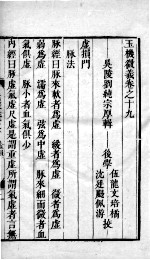 玉機微義卷之十九
吳陵劉純宗厚輯
後學
伍能文培橘
沈廷颺佩游
校
虛損門
脉法
脉經曰脉來軟者為虛 緩者為虛 微者為虛
弱為虛 濡為虛 弦為中虛 脉來細而微者血
氣俱虛 脉小者血氣俱少
内經曰脉虛氣虛尺虛是謂重虛所謂氣虛者言無